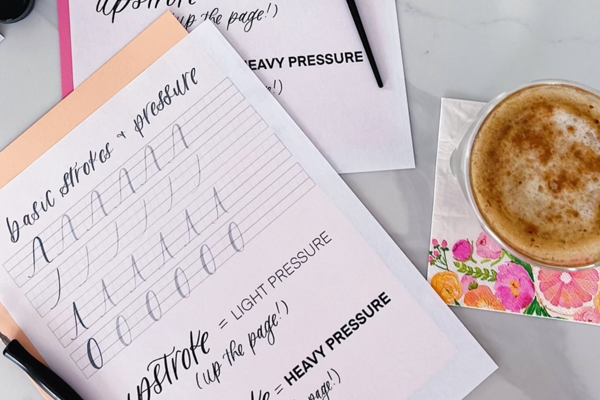 upstroke
(up the page!)
HEAVY PRESSURE
basic strokes + pressure
upstroke = LIGHT PRESSURE
(up the page!)
= HEAVY PRESSURE
page!)